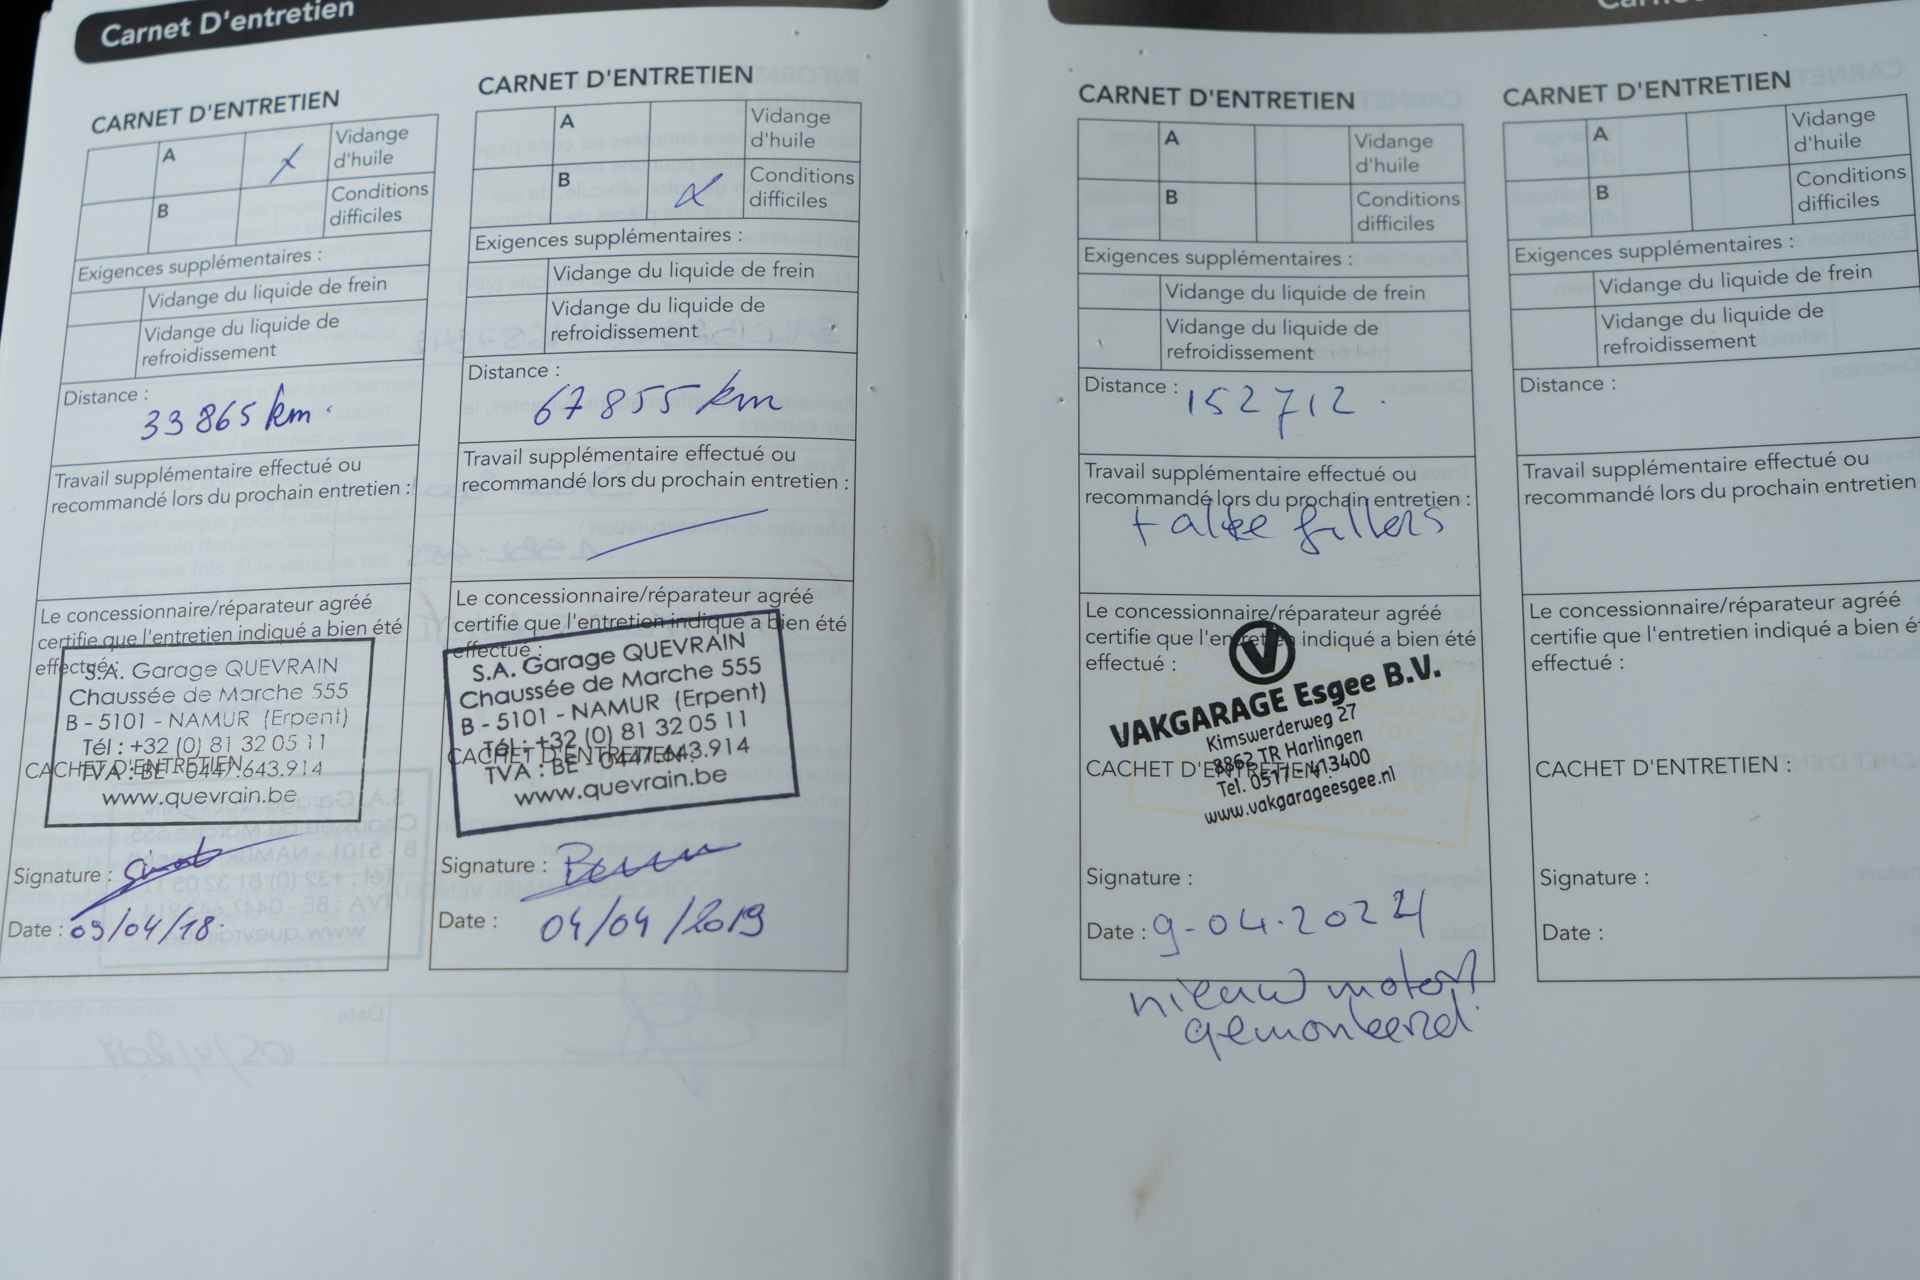 Carnet D'entretien
CARNET D'ENTRETIEN
A x Vidange d'huile
B Conditions difficiles
Exigences supplémentaires :
Vidange du liquide de frein
Vidange du liquide de
refroidissement
Distance :
33 865 km.
Travail supplémentaire effectué ou
recommandé lors du prochain entretien :
Le concessionnaire/réparateur agréé
certifie que l'entretien indiqué a bien été
effectué :
S.A. Garage QUEVRAIN
Chaussée de Marche 555
B - 5101 - NAMUR (Erpent)
Tél : +32 (0) 81 32 05 11
CACHET D'ENTRETIEN :
TVA : BE - 0447.643.914
www.quevrain.be
Signature :
Date : 03/04/18.
CARNET D'ENTRETIEN
A Vidange d'huile
B x Conditions difficiles
Exigences supplémentaires :
Vidange du liquide de frein
Vidange du liquide de
refroidissement
Distance :
67 855 km
Travail supplémentaire effectué ou
recommandé lors du prochain entretien :
Le concessionnaire/réparateur agréé
certifie que l'entretien indiqué a bien été
effectué :
S.A. Garage QUEVRAIN
Chaussée de Marche 555
B - 5101 - NAMUR (Erpent)
Tél : +32 (0) 81 32 05 11
CACHET D'ENTRETIEN :
TVA : BE - 0447.643.914
www.quevrain.be
Signature :
Date : 04/04/2019
CARNET D'ENTRETIEN
A Vidange d'huile
B Conditions difficiles
Exigences supplémentaires :
Vidange du liquide de frein
Vidange du liquide de
refroidissement
Distance : 152712.
Travail supplémentaire effectué ou
recommandé lors du prochain entretien :
+ alle filters
Le concessionnaire/réparateur agréé
certifie que l'entretien indiqué a bien été
effectué :
V
VAKGARAGE Esgee B.V.
Kimswerderweg 27
8862 TR Harlingen
CACHET D'ENTRETIEN :
Tel. 0517 - 413400
www.vakgarageesgee.nl
Signature :
Date : 9-04-2024
nieuw motor
gemonteerd.
CARNET D'ENTRETIEN
A Vidange d'huile
B Conditions difficiles
Exigences supplémentaires :
Vidange du liquide de frein
Vidange du liquide de
refroidissement
Distance :
Travail supplémentaire effectué ou
recommandé lors du prochain entretien
Le concessionnaire/réparateur agréé
certifie que l'entretien indiqué a bien
effectué :
CACHET D'ENTRETIEN :
Signature :
Date :